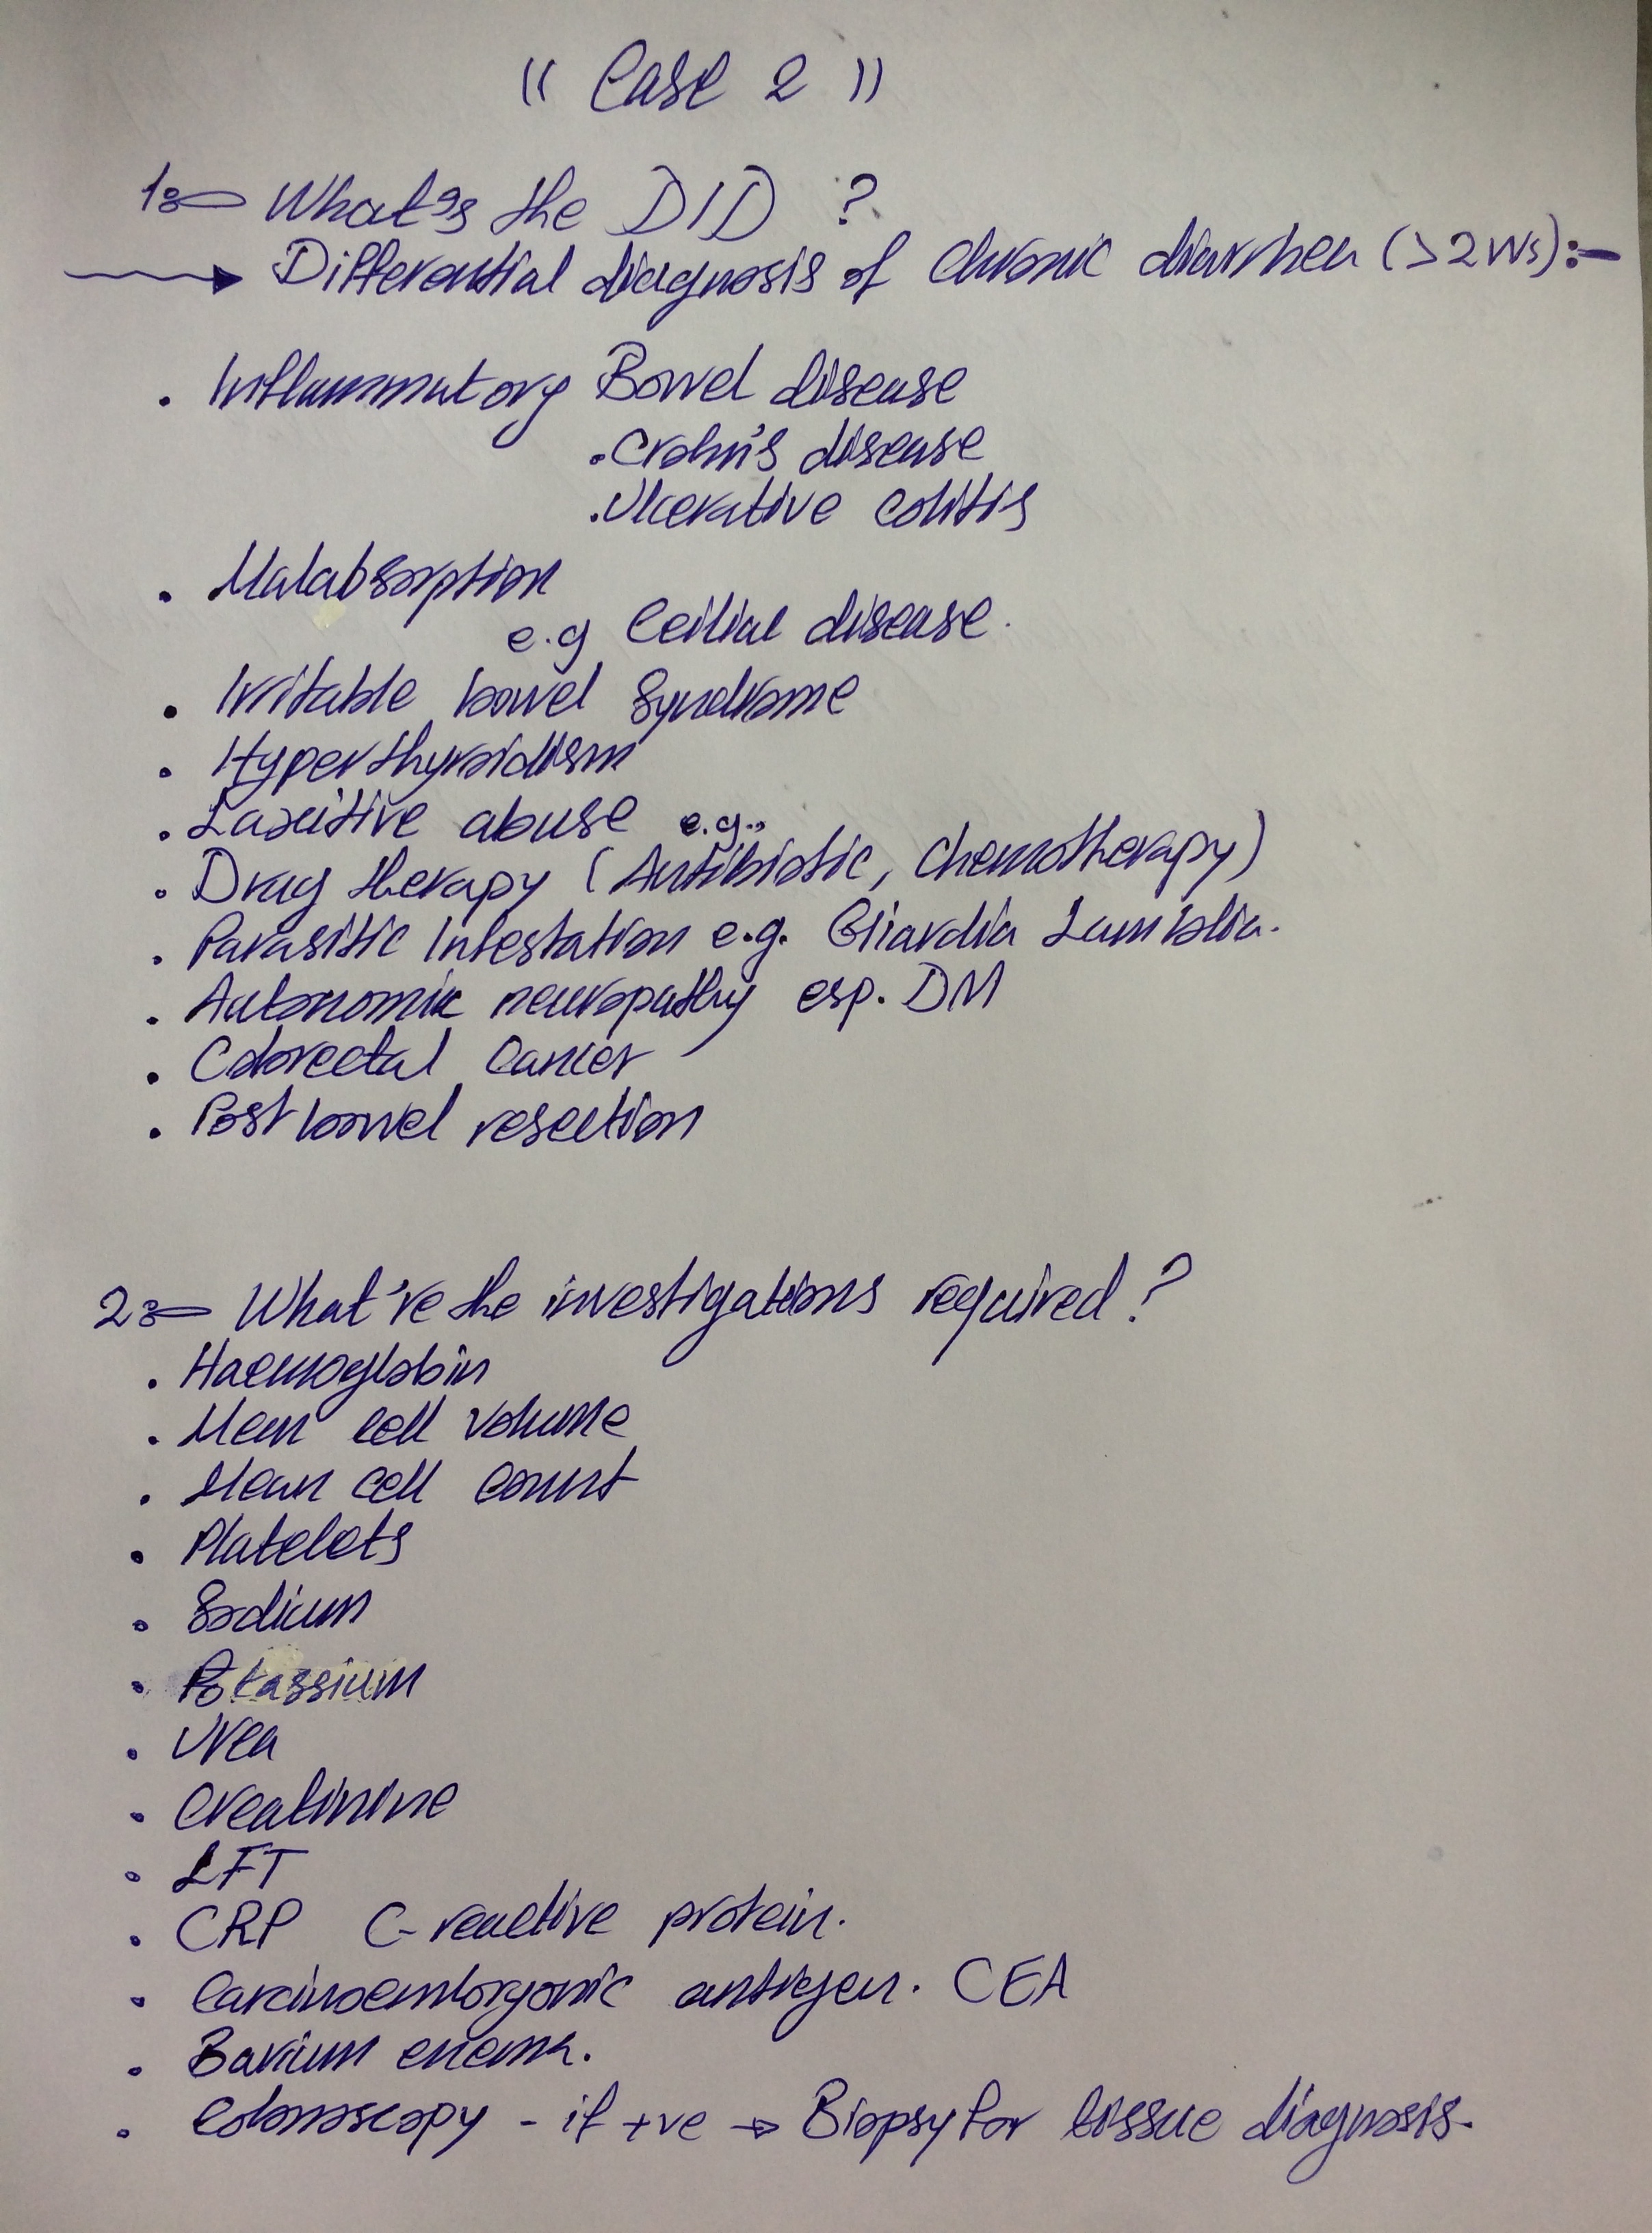 (( Case 2 ))
1:- What's the D/D ?
Differential diagnosis of Chronic diarrhea (>2Ws):-
. Inflammatory Bowel disease
.Crohn's disease
.Ulcerative colitis
. Malabsorption
e.g Ceiliac disease.
. Irritable bowel Syndrome
. Hyperthyroidism
. Laxitive abuse e.g.,
. Drug therapy (Antibiotic, Chemotherapy)
. Parasitic Infestation e.g. Giardia Lamblia.
. Autonomic neuropathy esp. DM
. Colorectal Cancer
. Post bowel resection
2:- What're the investigations required?
. Haemoglobin
. Mean cell volume
. Mean cell count
. Platelets
. Sodium
. Potassium
. Urea
. Creatinine
. LFT
. CRP C-reactive protein.
. Carcinoembrgonic antigen. CEA
. Barium enema.
. Colonoscopy - if +ve → Biopsy for tissue diagnosis.